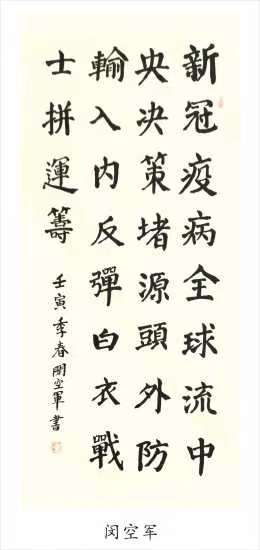 新冠疫病全球流中
央决策堵源頭外防
輸入内反彈白衣戰
士拼運籌
壬寅季春閔空軍書
闵空军